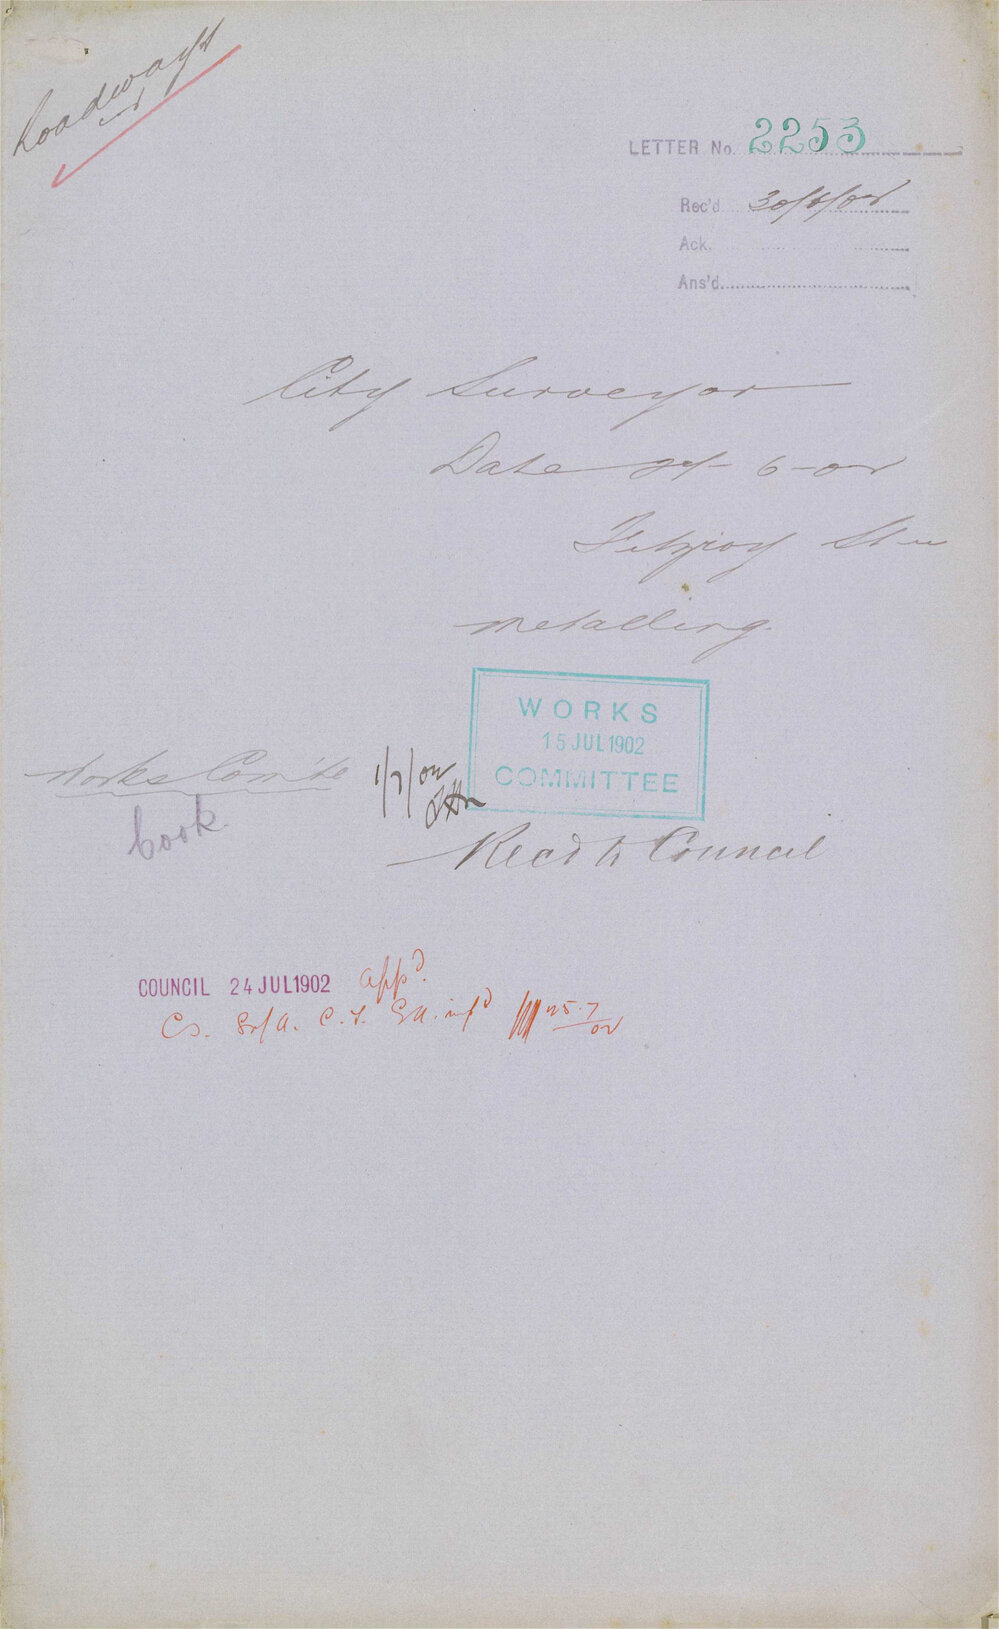 Roadways
LETTER No. 2253
Rec'd 30/6/02
Ack.
Ans'd
City Surveyor
Date 6-02
Fitzroy St
metalling.
WORKS
15 JUL 1902
COMMITTEE
Works Com'tee 1/7/02
book
Recd to Council
COUNCIL 24 JUL 1902 appd.
Cs. C.T. infd 25.7/02